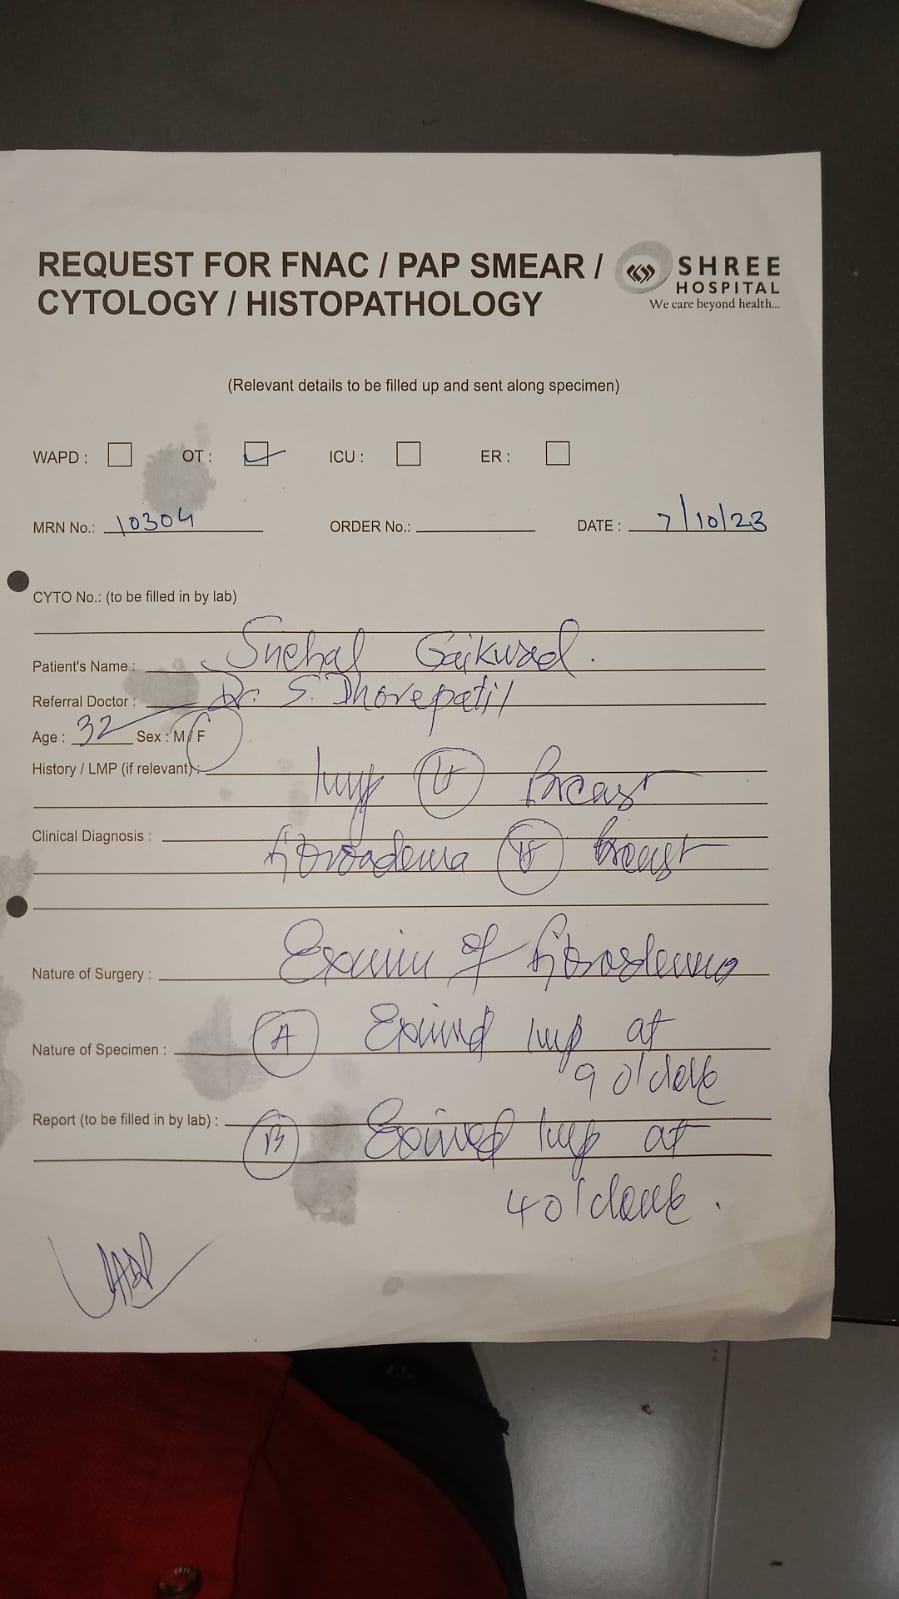 REQUEST FOR FNAC / PAP SMEAR /
CYTOLOGY / HISTOPATHOLOGY
SHREE
HOSPITAL
We care beyond health...
(Relevant details to be filled up and sent along specimen)
WAPD : OT : ICU : ER :
MRN No.: 10304 ORDER No.: DATE : 7/10/23
CYTO No.: (to be filled in by lab)
Patient's Name : Snehal Gaikwad.
Referral Doctor : Dr. S. Dhorepatil
Age : 32 Sex : M / F
History / LMP (if relevant) : lump Breast
Clinical Diagnosis : fibroadenoma breast
Nature of Surgery : Excision of fibroadenoma
Nature of Specimen : A Excised lump at
9 o'clock
Report (to be filled in by lab) : B Excised lump at
4 o'clock.